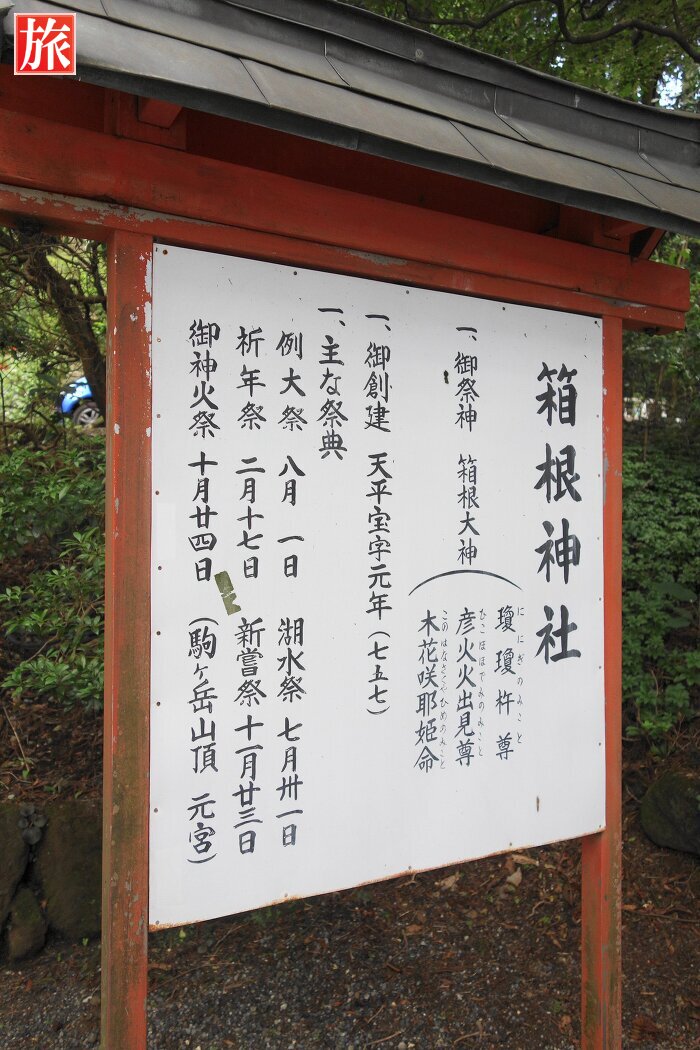 旅
箱根神社
一、御祭神 箱根大神
瓊瓊杵尊
ににぎのみこと
彦火火出見尊
ひこほほでみのみこと
木花咲耶姫命
このはなさくやひめのみこと
一、御創建 天平宝字元年(七五七)
一、主な祭典
例大祭 八月 一日 湖水祭 七月卅一日
祈年祭 二月十七日 新嘗祭 十一月廿三日
御神火祭 十月廿四日(駒ヶ岳山頂 元宮)